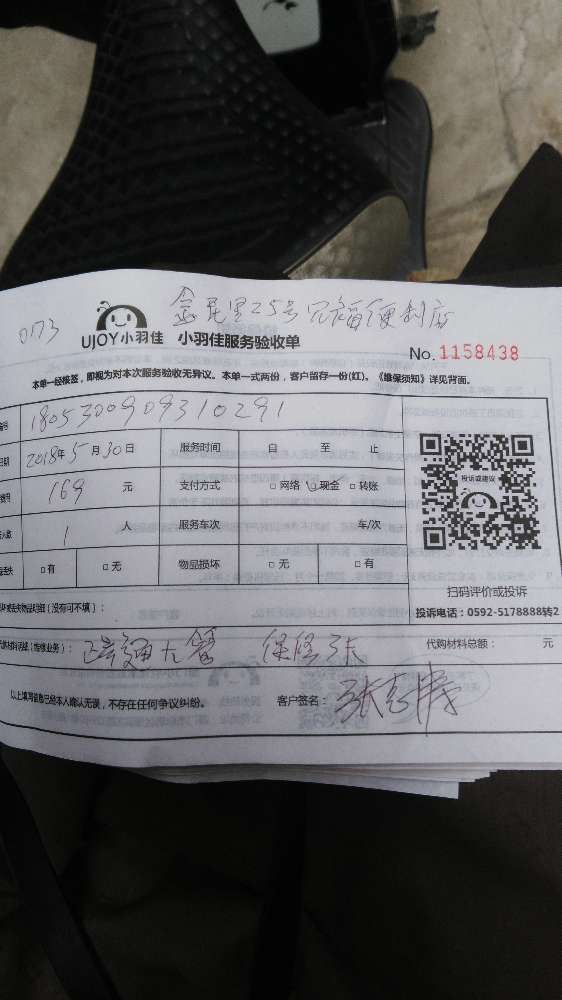 0173
25号
便利店
UJOY小羽佳 小羽佳服务验收单
No. 1158438
本单一经核签，即视为对本次服务验收无异议。本单一式两份，客户留存一份(红)。《维保须知》详见背面。
编号 1805300909310291
日期 2018年5月30日 服务时间 自 至 止
169 元 支付方式 □网络 □现金 □转账
人数 1 服务车次 车/次
丢失 □有 □无 物品损坏 □无 □有
投诉或建议
扫码评价或投诉
投诉电话：0592-5178888转2
物品明细（没有可不填）：
（维修业务）： 代购材料总额： 元
以上填写信息已经本人确认无误，不存在任何争议纠纷。 客户签名：